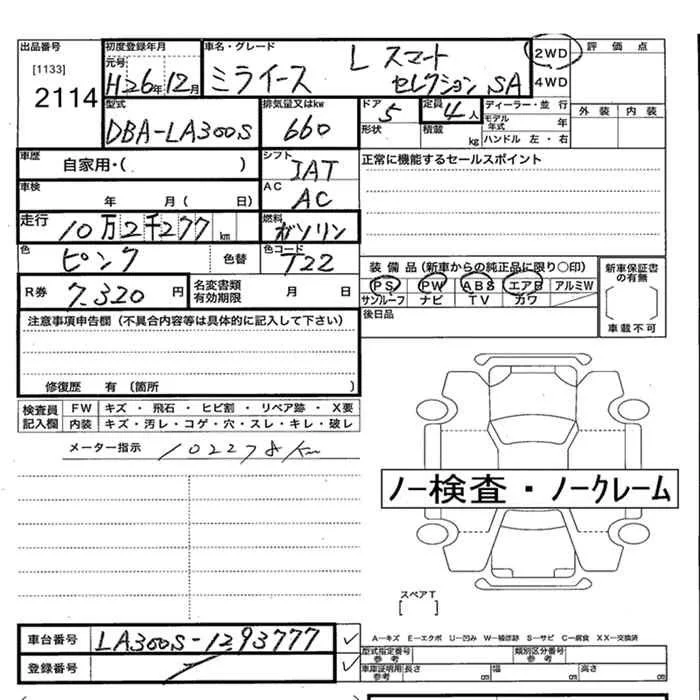 出品番号 初度登録年月 車名・グレード 評価点
[1133] 元号 L スマート 2WD
2114 H26年12月 ミライース セレクション SA 4WD
型式 排気量又はkw ドア 定員 ディーラー・並行 外装 内装
DBA-LA300S 660 5 4人 モデル年式 年
形状 積載 kg ハンドル 左・右
車歴 自家用・( ) シフト IAT 正常に機能するセールスポイント
車検 年 月( 日) AC AC
走行 10万2千277km 燃料 ガソリン
色 ピンク 色替 色コード T22
装備品(新車からの純正品に限り○印) 新車保証書の有無
R券 7.320円 名変書類有効期限 月 日 PS PW ABS エアB アルミW
サンルーフ ナビ TV カワ
注意事項申告欄(不具合内容等は具体的に記入して下さい) 後日品 車載不可
修復歴 有(箇所 )
検査員記入欄 FW キズ・飛石・ヒビ割・リペア跡・X要
内装 キズ・汚レ・コゲ・穴・スレ・キレ・破レ
メーター指示 102278km
ノー検査・ノークレーム
スペアT
[ ]
車台番号 LA300S-1293777 ✓ A-キズ E-エクボ U-凹み W-補修跡 S-サビ C-腐食 XX-交換済
登録番号 ✓ 型式指定番号 参考 類別区分番号 参考
車庫証明用 参考 長さ 幅 高さ